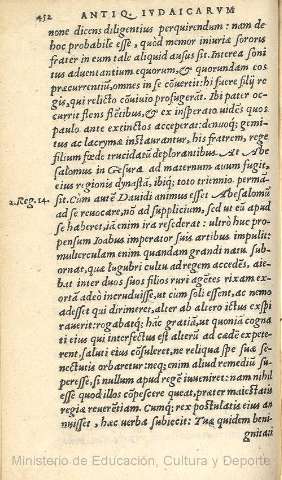 452 ANTIQ. IVDAICARVM
none dicens diligentius perquirendum: nam de
hoc probabile esse, quòd memor iniuriæ sororis
frater in eum tale aliquid ausus sit. Interea soni
tus aduentantium equorum, & quorundam eos
præcurrentiũ, omnes in se cõuertit: hi fuere filij re
gis, qui relicto cõuiuio profugerãt. Ibi pater oc-
currit flens flẽtibus, & ex insperato uidẽs quos
paulo ante extinctos acceperat: denuoq; gemi
tus ac lacrymæ instaurantur, his fratrem, rege
filium fœde trucidatũ deplorantibus. At Abe
salomus in Gesurã ad maternum auum fugit,
eius regionis dynastã, ibiq; toto triennio perman
2. Reg. 14. sit. Cum autẽ Dauidi animus esset Abesalomũ
ad se reuocare, nõ ad supplicium, sed ut eũ apud
se haberet, ià enim ira resederat: ultrò huc pro-
pensum Ioabus imperator suis artibus impulit:
mulierculam enim quandam grandi natu sub-
ornat, quæ lugubri cultu ad regem accedẽs, aie-
bat inter duos suos filios ruri agẽtes rixam exor
tã adeò incruduisse, ut cum soli essent, ac nemo
adesset qui dirimeret, alter ab altero ictus expi
rauerit: rogabatq; hãc gratiã, ut quoniã cogna
ti eius qui interfectus est alterũ ad cædẽ expete-
rent, saluti eius cõsuleret, ne reliqua spe suæ se-
nectutis orbaretur: nec enim aliud remediũ su-
peresse, si nullum apud regẽ inueniret: nam nihil
esse quod illos cõpescere queat, præter maiestatis
regiæ reuerẽtiam. Cumq; rex postulatis eius an
nuisset, hæc uerba subiecit: Tuæ quidem beni
gnitati
Ministerio de Educación, Cultura y Deporte